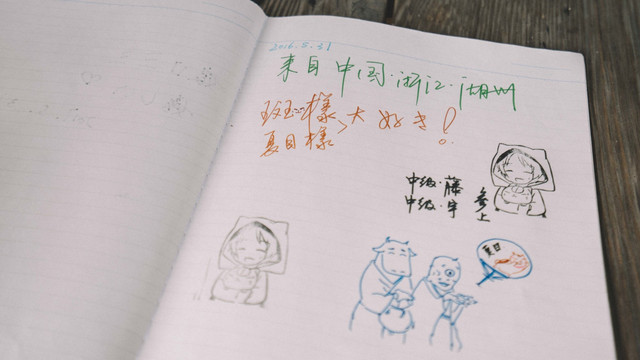 2016.8.31
来自中国·浙江·湖州
斑様
夏目様
大好き!
中级·藤
中级·宇
参上
夏目